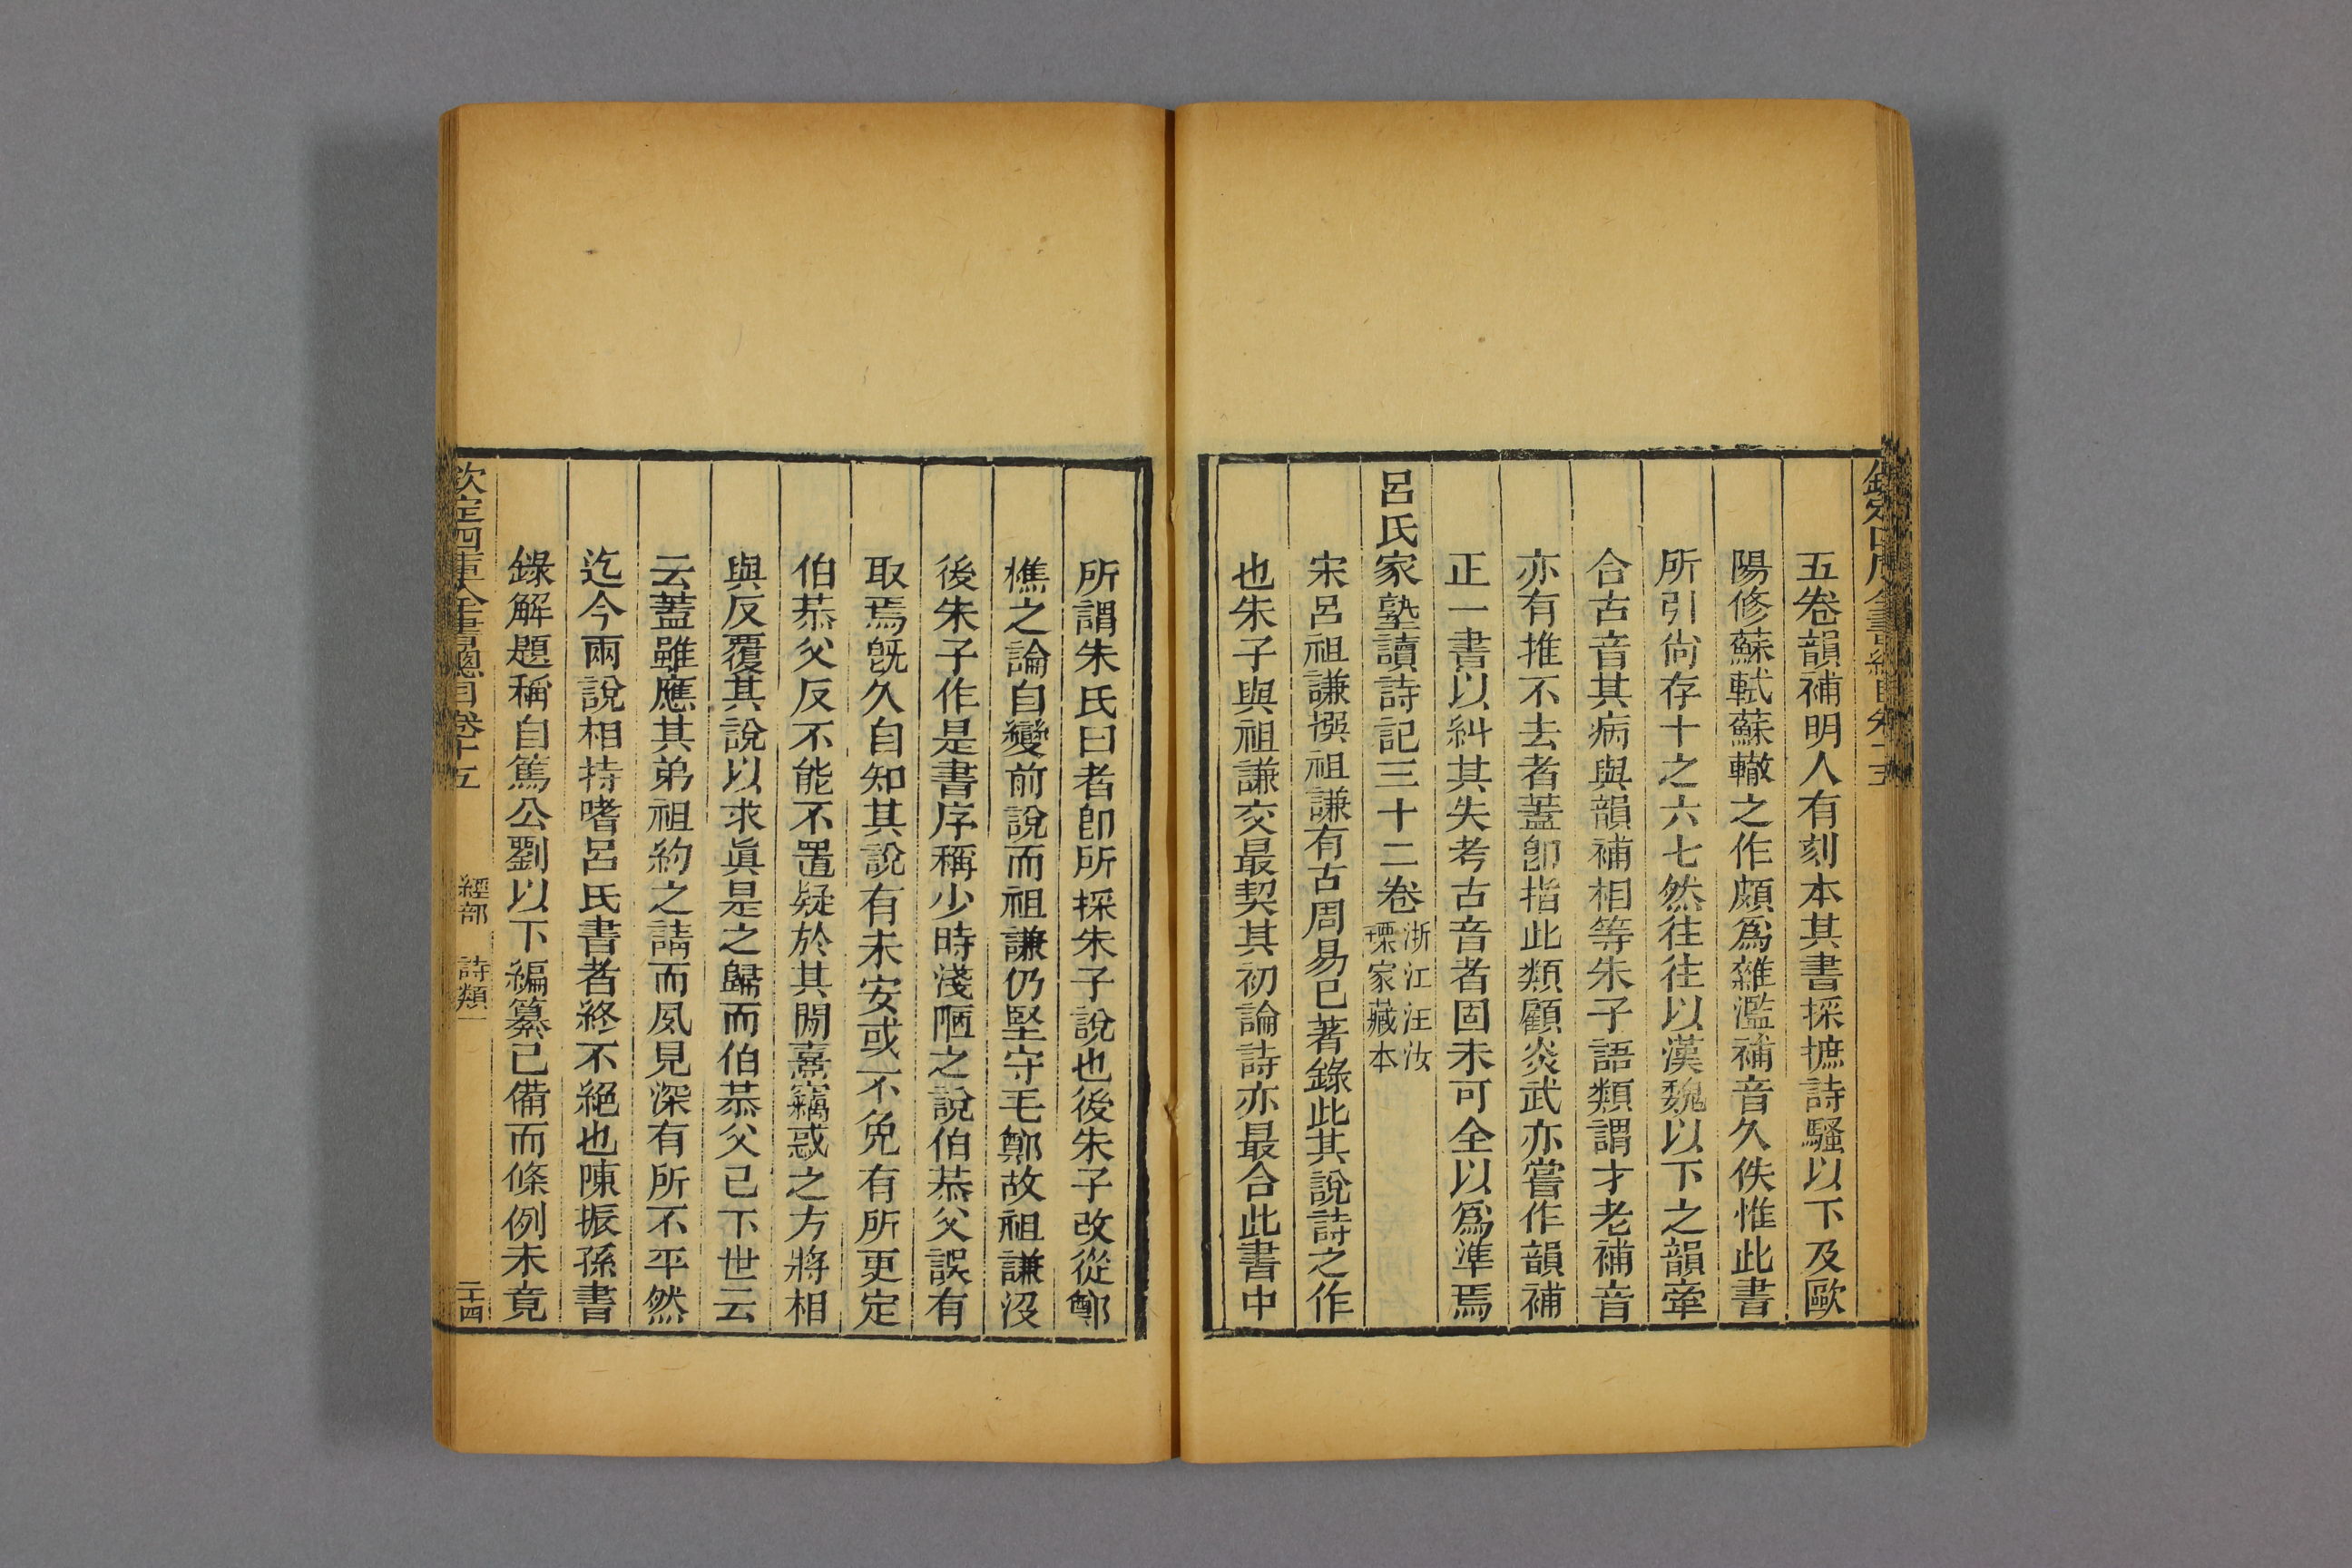 五卷韻補明人有刻本其書採摭詩騷以下及歐
陽修蘇軾蘇轍之作頗爲雜濫補音久佚惟此書
所引尙存十之六七然往往以漢魏以下之韻牽
合古音其病與韻補相等朱子語類謂才老補音
亦有推不去者蓋卽指此類顧炎武亦嘗作韻補
正一書以糾其失考古音者固未可全以爲準焉
呂氏家塾讀詩記三十二卷
浙江汪汝
瑮家藏本
宋呂祖謙撰祖謙有古周易已著錄此其說詩之作
也朱子與祖謙交最契其初論詩亦最合此書中
所謂朱氏曰者卽所採朱子說也後朱子改從鄭
樵之論自變前說而祖謙仍堅守毛鄭故祖謙没
後朱子作是書序稱少時淺陋之說伯恭父誤有
取焉旣久自知其說有未安或不免有所更定
伯恭父反不能不置疑於其閒熹竊惑之方將相
與反覆其說以求眞是之歸而伯恭父已下世云
云蓋雖應其弟祖約之請而夙見深有所不平然
迄今兩說相持嗜呂氏書者終不絕也陳振孫書
錄解題稱自篤公劉以下編纂已備而條例未竟
欽定四庫全書總目卷十五
經部
詩類一
二十四